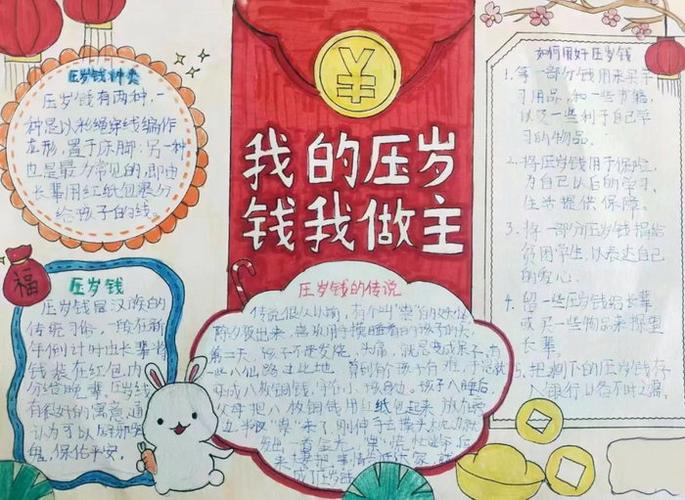 压岁钱种类
压岁钱有两种,一
种是以彩绳穿线编作
龙形,置于床脚,另一种
也是最为常见的,即由
长辈用红纸包裹分
给孩子的钱。
福
压岁钱
压岁钱是汉族的
传统习俗,一般在新
年倒计时由长辈将
钱装在红包内
分给晚辈,压岁钱
有很好的寓意,通
认为可以
保佑平安。
¥
我的压岁
钱我做主
压岁钱的传说
传说很久以前,有个叫"祟"的
除夕夜出来,用手摸睡着的孩子的头
第二天,孩子不是发烧、头痛,就是变成傻子,有
一些八仙路过此地,算到的孩子有难,于是就
变成八枚铜钱,守在小孩身边。孩子入睡后
父母把八枚铜钱用红纸包起来放在
边,半夜"祟"来了,刚伸手去摸
出一
来
如何用好压岁钱
1. 第一部分钱用来买学
习用品,和一些书籍,
以及一些利于自己学
习的物品。
2. 将压岁钱用于保险,
为自己以后的学习,
生活提供保障。
3. 将一部分压岁钱捐给
贫困学生,以表达自己
的爱心。
4. 留一些压岁钱给长辈
或买一些物品来探望
长辈。
5. 把剩下的压岁钱存
入银行以备不时之需。